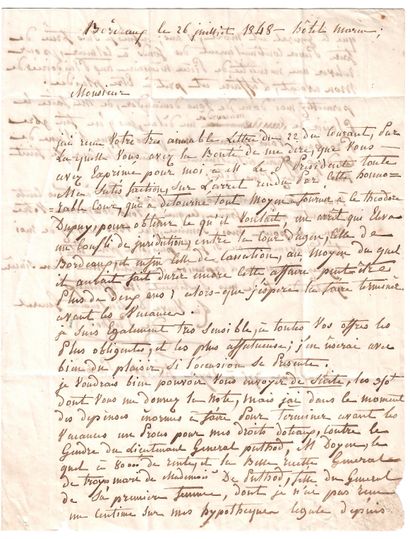 Bordeaux le 26 juilliet 1848 - hôtel marin;
Monsieur
j'ai reçu Votre tres aimable Lettre du 22 du Courant, Par
La quelle Vous avez la Bonté de me dire, que Vous
avez Exprimé pour moi, à M. Le Président toute
Ma Satisfaction, Sur L'arret rendu Par Cette hono-
=rable Cour, qui a détourné tout Moyen fourni à le théodore
Dupuy, pour obtenir Ce qu'il Voulait, un arret qui Eleva
un Conflit de juridition, entre la Cour Celle de
Bordeaux, et enfin Celle de Cassation, au moyen du quel
il aurait fait durer encore Cette affaire peut être
Plus de deux ans, alors que j'espère la faire terminer
avant les Vacances.
je suis Egalement tres Sensible, à toutes Vos offres les
Plus obligentes, et les plus affectueuse; j'en userai avec
bien du plaisir, Si l'occasion Se Présente.
je Voudrais bien pouvoir Vous envoyer de Suite, les
dont Vous me donnez la Note, mais j'ai dans le moment
des depenses inormes à faire Pour terminer avant les
Vacances un Procès pour mes droits dotaux, Contre le
Gendre du Lieutenant General puthod, M. Doyen, le
quel à 80000 de rente, et la Belle General
de Mademoi De Puthod, fille du General
de Sa premiere femme, dont je n'ai pas reçu
un centime Sur mes hypotheques legale depuis